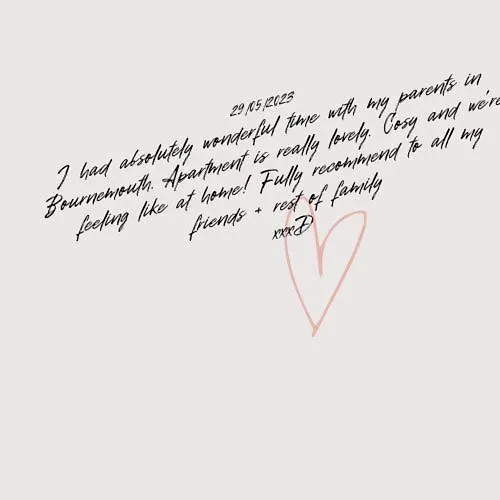 29/05/2023
I had absolutely wonderful time with my parents in
Bournemouth. Apartment is really lovely. Cosy and we're
feeling like at home! Fully recommend to all my
friends + rest of family
xxxD